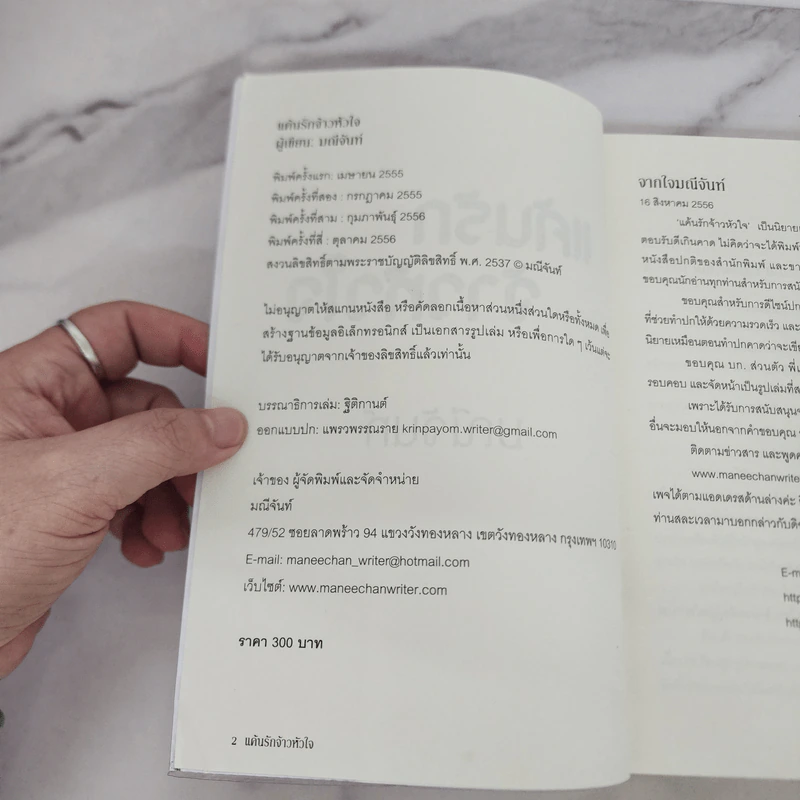 แค้นรักจ้าวหัวใจ
ผู้เขียน: มณีจันท์
พิมพ์ครั้งแรก: เมษายน 2555
พิมพ์ครั้งที่สอง : กรกฎาคม 2555
พิมพ์ครั้งที่สาม : กุมภาพันธุ์ 2556
พิมพ์ครั้งที่สี่ : ตุลาคม 2556
สงวนลิขสิทธิ์ตามพระราชบัญญัติลิขสิทธิ์ พ.ศ. 2537 © มณีจันท์
ไม่อนุญาตให้สแกนหนังสือ หรือคัดลอกเนื้อหาส่วนหนึ่งส่วนใดหรือทั้งหมด เพื่อ
สร้างฐานข้อมูลอิเล็กทรอนิกส์ เป็นเอกสารรูปเล่ม หรือเพื่อการใด ๆ เว้นแต่จะ
ได้รับอนุญาตจากเจ้าของลิขสิทธิ์แล้วเท่านั้น
บรรณาธิการเล่ม: ฐิติกานต์
ออกแบบปก: แพรวพรรณราย krinpayom.writer@gmail.com
เจ้าของ ผู้จัดพิมพ์และจัดจำหน่าย
มณีจันท์
479/52 ซอยลาดพร้าว 94 แขวงวังทองหลาง เขตวังทองหลาง กรุงเทพฯ 10310
E-mail: maneechan_writer@hotmail.com
เว็บไซต์: www.maneechanwriter.com
ราคา 300 บาท
2 แค้นรักจ้าวหัวใจ
จากใจมณีจันท์
16 สิงหาคม 2556
'แค้นรักจ้าวหัวใจ' เป็นนิยาย
ตอบรับดีเกินคาด ไม่คิดว่าจะได้พิมพ์
หนังสือปกติของสำนักพิมพ์ และขา
ขอบคุณนักอ่านทุกท่านสำหรับการสนั
ขอบคุณสำหรับการดีไซน์ปก
ที่ช่วยทำปกให้ด้วยความรวดเร็ว และ
นิยายเหมือนตอนทำปกคาดว่าจะเขีย
ขอบคุณ บก. ส่วนตัว พี่
รอบคอบ และจัดหน้าเป็นรูปเล่มที่ส
เพราะได้รับการสนับสนุน
อื่นจะมอบให้นอกจากคำขอบคุณ
ติดตามข่าวสาร และพูดค
www.maneechanwrite
เพจได้ตามแอดเดรสด้านล่างค่ะ
ท่านสละเวลามาบอกกล่าวกับดิ
E-m
http
http